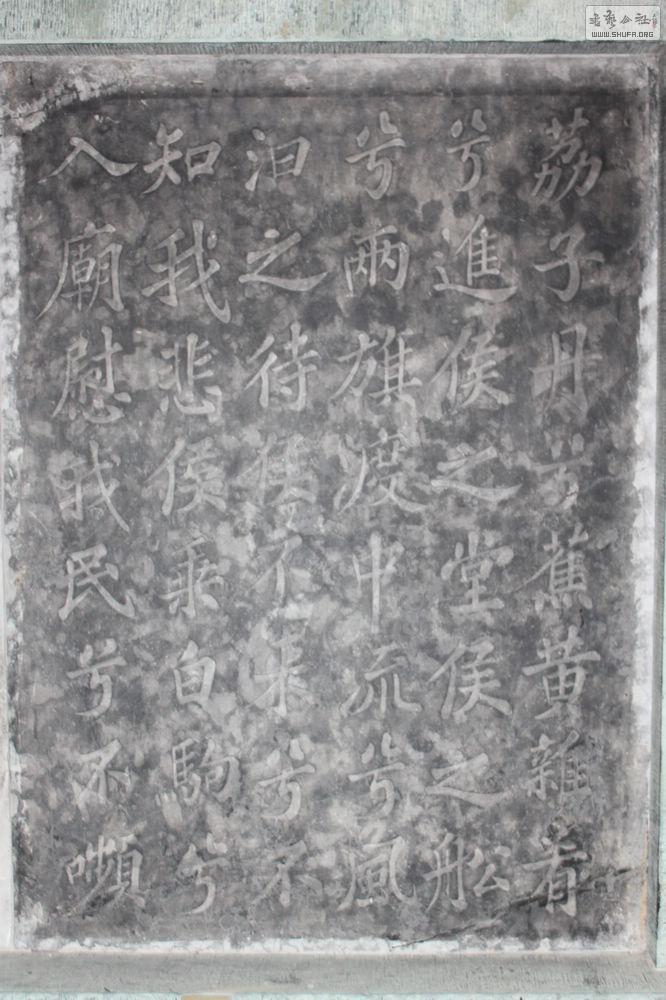 荔子丹兮蕉黄雜肴
兮進侯之堂侯之船
兮兩旗度中流兮風
汩之待侯不来兮不
知我悲侯乗白駒兮
入廟慰我民兮不嚬
書藝公社
WWW.SHUFA.ORG